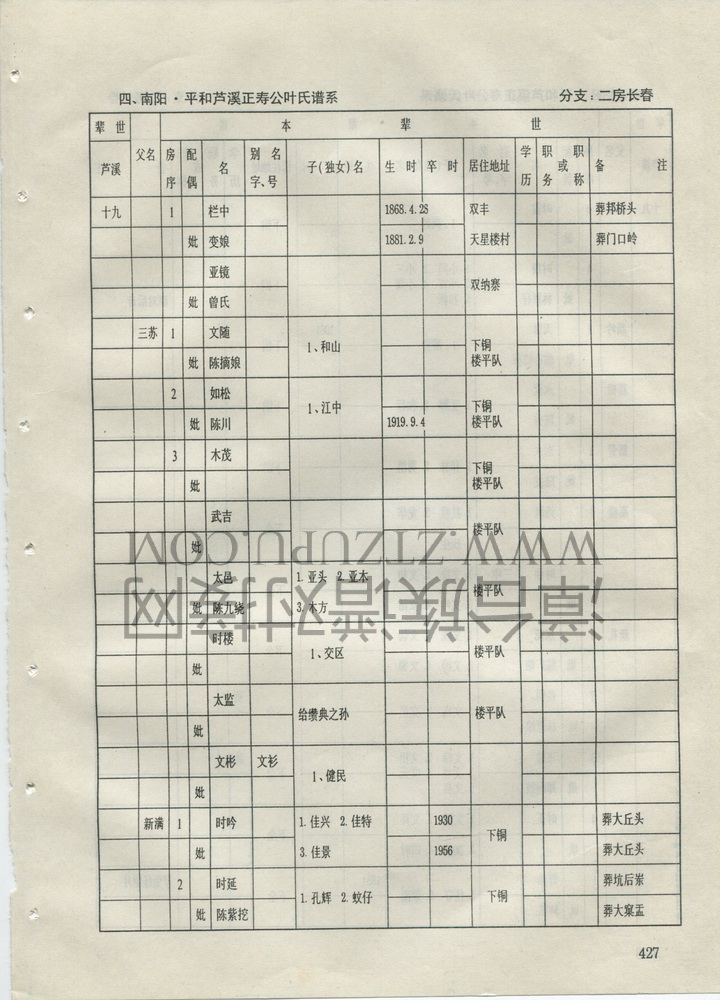 四、南阳·平和芦溪正寿公叶氏谱系 分支：二房长春
辈世 本辈世
芦溪 父名 房序 配偶 名 别名字、号 子(独女)名 生时 卒时 居住地址 学历 职务或职称 备注
十九 1 栏中 1868.4.28 双丰 葬邦桥头
妣 变娘 1881.2.9 天星楼村 葬门口岭
亚镜 双纳寨
妣 曾氏
三苏 1 文随 1、和山 下铜楼平队
妣 陈摘娘
2 如松 1、江中 下铜楼平队
妣 陈川 1919.9.4
3 木茂 下铜楼平队
妣
武吉 楼平队
妣
太邑 1.亚头 2.亚本 楼平队
妣 陈九绕 3.木方
时楼 1、交区 楼平队
妣
太监 给缵典之孙 楼平队
妣
文彬 文衫 1、健民
妣
新满 1 时吟 1.佳兴 2.佳特 1930 下铜 葬大丘头
妣 3.佳景 1956 葬大丘头
2 时延 1.孔辉 2.蚊仔 下铜 葬坑后岽
妣 陈紫挖 葬大窠盂
427
WWW.ZTZUPU.COM
漳台族谱对接网